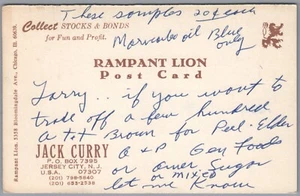 These samples 20¢ each
Collect STOCKS & BONDS
for Fun and Profit.
Maracaibo oil Blue
only
RAMPANT LION
Post Card
Larry.. if you want to
trade off a few hundred
A.T.T Brown for Peel-Elder
JACK CURRY
P. O. BOX 7395
JERSEY CITY, N. J.
U.S.A. 07307
(201) 798-5840
(201) 653-2538
A & P Gay Foods
or Omer Sugar
or mixed
let me know
Rampant Lion, 1158 Bloomingdale Ave., Chicago, Ill.